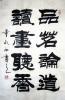 品茗論道
讀畫聽香